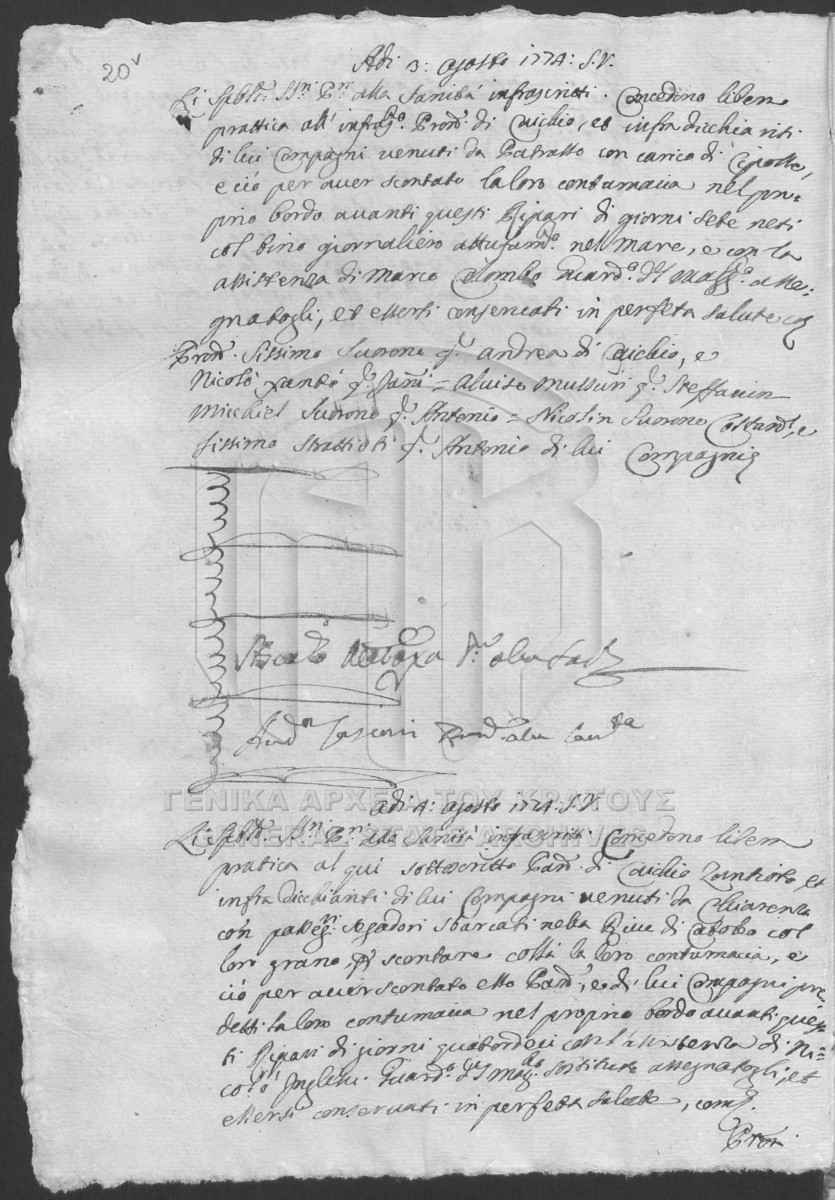 20v
Adi 3: agosto 1774: S.V.
Li Spbli. SSri. Pri. alla Sanità infrascritti. Concedono libera
prattica all' infrasto. Prone. di Caichio, et infradicchiariti
di lui Compagni venuti da Patrasso con carico di Cipolle,
e ciò per aver scontato la loro contumacia nel pro=
prio bordo avanti questi Ripari di giorni sete neti
col bino giornaliero attufamto. nel mare, e con la
assistenza di Marco Colombo Guardo. dl Maggo. asse=
gnatogli, et essersi conservati in perfeta salute
Prone. Sissimo Suorono qm. andrea di Caichio, e
Nicolò xantò qm. Janni = Aluise Mussuri qm. Steffanin
Micchiel Suorono qm. Antonio = Nicolin Suorono Costandi, e
Sissimo Strattioti qm. Antonio di lui Compagni
Pr. alla Sad
Andn Prone alla Sanità
ΓΕΝΙΚΑ ΑΡΧΕΙΑ ΤΟΥ ΚΡΑΤΟΥΣ
GENERAL STATE ARCHIVES
adi 4: agosto 1774: S.V.
Li Spbli. SSri. Pri. alla Sanità infrascritti Concedono libera
pratica al qui sottoscritto Pane. di Caichio Zantioto, et
infradicchianti di lui Compagni venuti da Chiarenza
con passegri. Segadori sbarcati nella Riva di Cattolo col
loro grano, p scontare colà la loro contumacia, e
ciò per aver scontato esso Pane., e di lui Compagni pre=
detti la loro contumacia nel proprio bordo avanti ques=
ti Ripari di giorni quatordeci coll' assistenza di Ni=
colò Inglessi Guardo. dl Maggo. sostituto assegnatogli, et
essersi conservati in perfetta salute, come.
Prone.